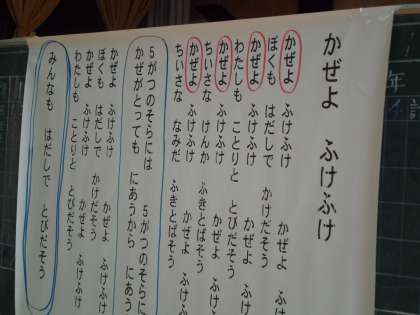 年
かぜよ ふけふけ
かぜよ ふけふけ かぜよ ふ
ぼくも はだしで かけだそう
かぜよ ふけふけ かぜよ ふけ
わたしも ことりと とびだそう
かぜよ ふけふけ かぜよ ふけ
ちいさな けんか ふきとばそう
かぜよ ふけふけ かぜよ ふけふ
ちいさな なみだ ふきとばそう
5がつのそらには 5がつのそらに
かぜがとっても にあうから にあう
かぜよ ふけふけ かぜよ ふけふ
ぼくも はだしで かけだそう
かぜよ ふけふけ かぜよ ふけふけ
わたしも ことりと とびだそう
みんなも はだしで とびだそう